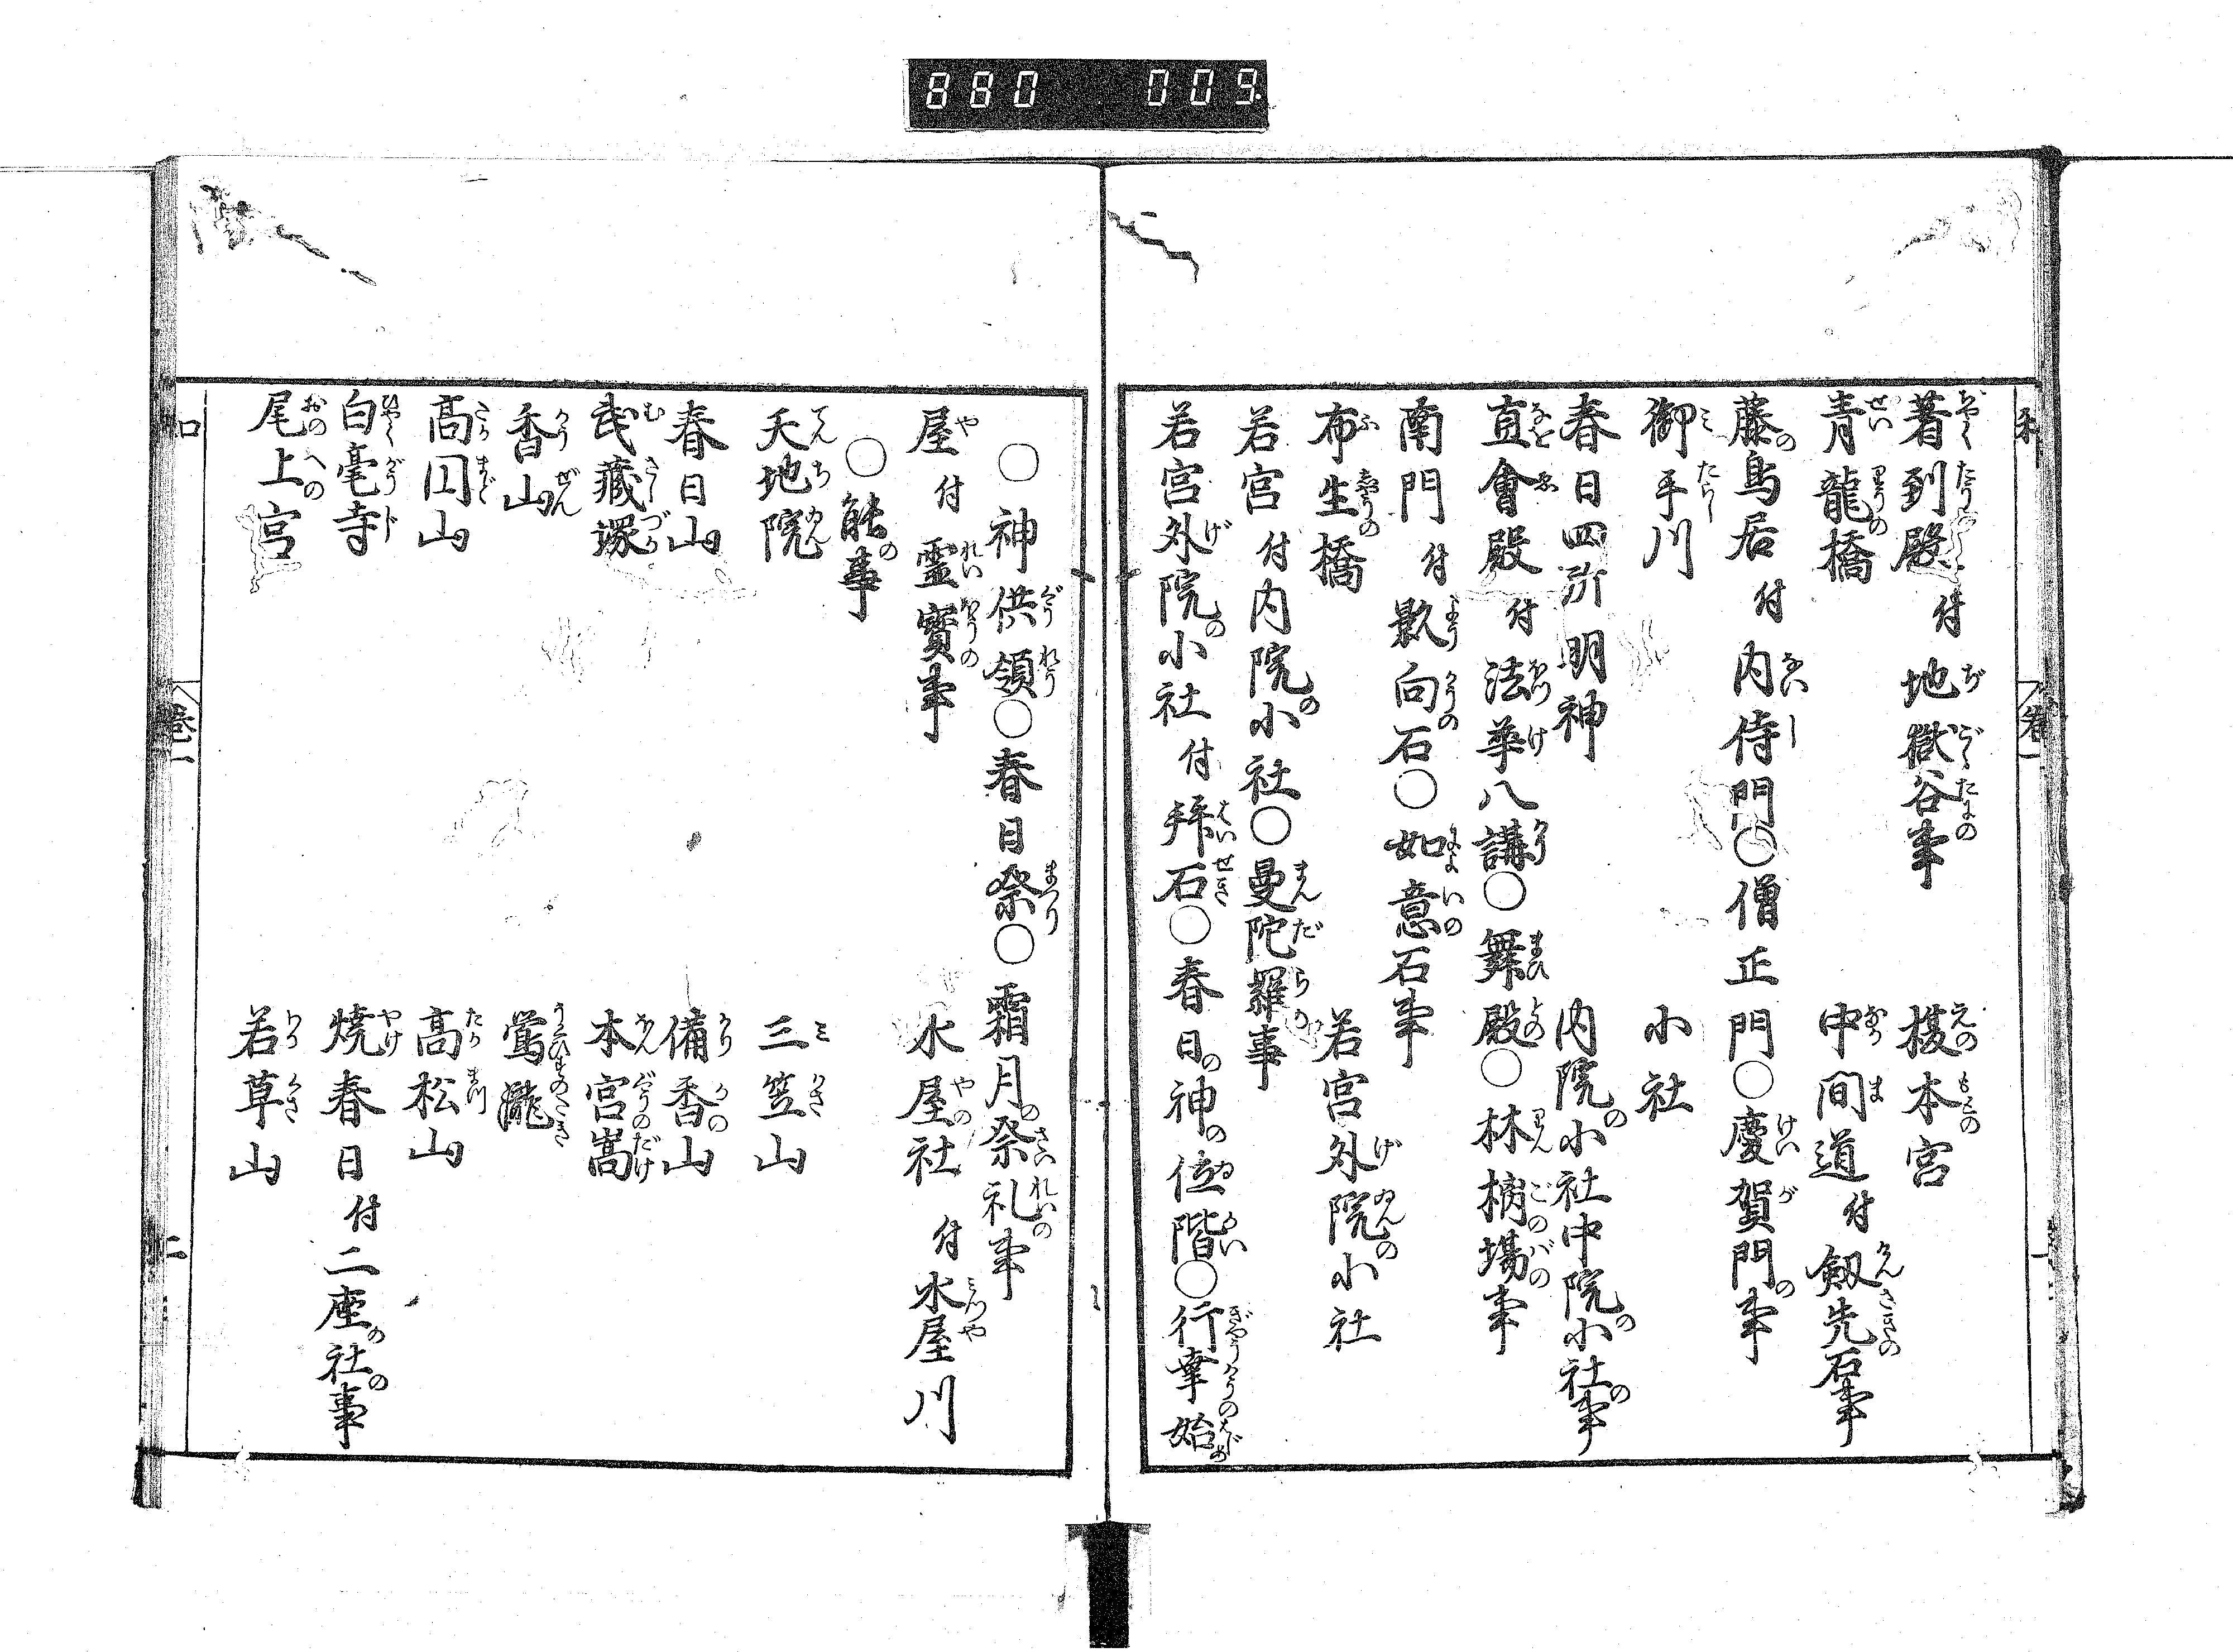 880 009
著到殿付地獄谷事 榎本宮
青龍橋 中間道付剱先石事
藤の鳥居付内侍門〇僧正門〇慶賀門の事
御手川 小社
春日四所明神 内院の小社中院の小社の事
直會殿付法華八講〇舞殿〇林檎場事
南門付影向石〇如意石事
布生橋 若宮外院の小社
若宮付内院の小社〇曼陀羅事
若宮外院の小社付拜石〇春日の神の位階〇行幸始
〇神供領〇春日祭〇霜月の祭礼事
屋付霊寳事 水屋社付水屋川
〇能の事
天地院 三笠山
春日山 備香山
武藏塚 本宮嵩
香山 鶯瀧
髙円山 髙松山
白毫寺 焼春日付二座の社の事
尾上宮 若草山
卷一
二